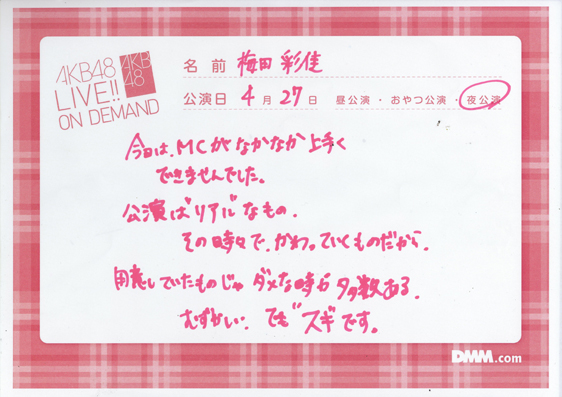 AKB48
LIVE!!
ON DEMAND
AKB
48
名前 梅田 彩佳
公演日 4月27日 昼公演・おやつ公演・夜公演
今日は、MCがなかなか上手く
できませんでした。
公演は"リアル"なもの。
その時々で、かわっていくものだから、
用意していたものじゃ ダメな時が 多数ある。
むずかしい。でも"スギ"です。
DMM.com